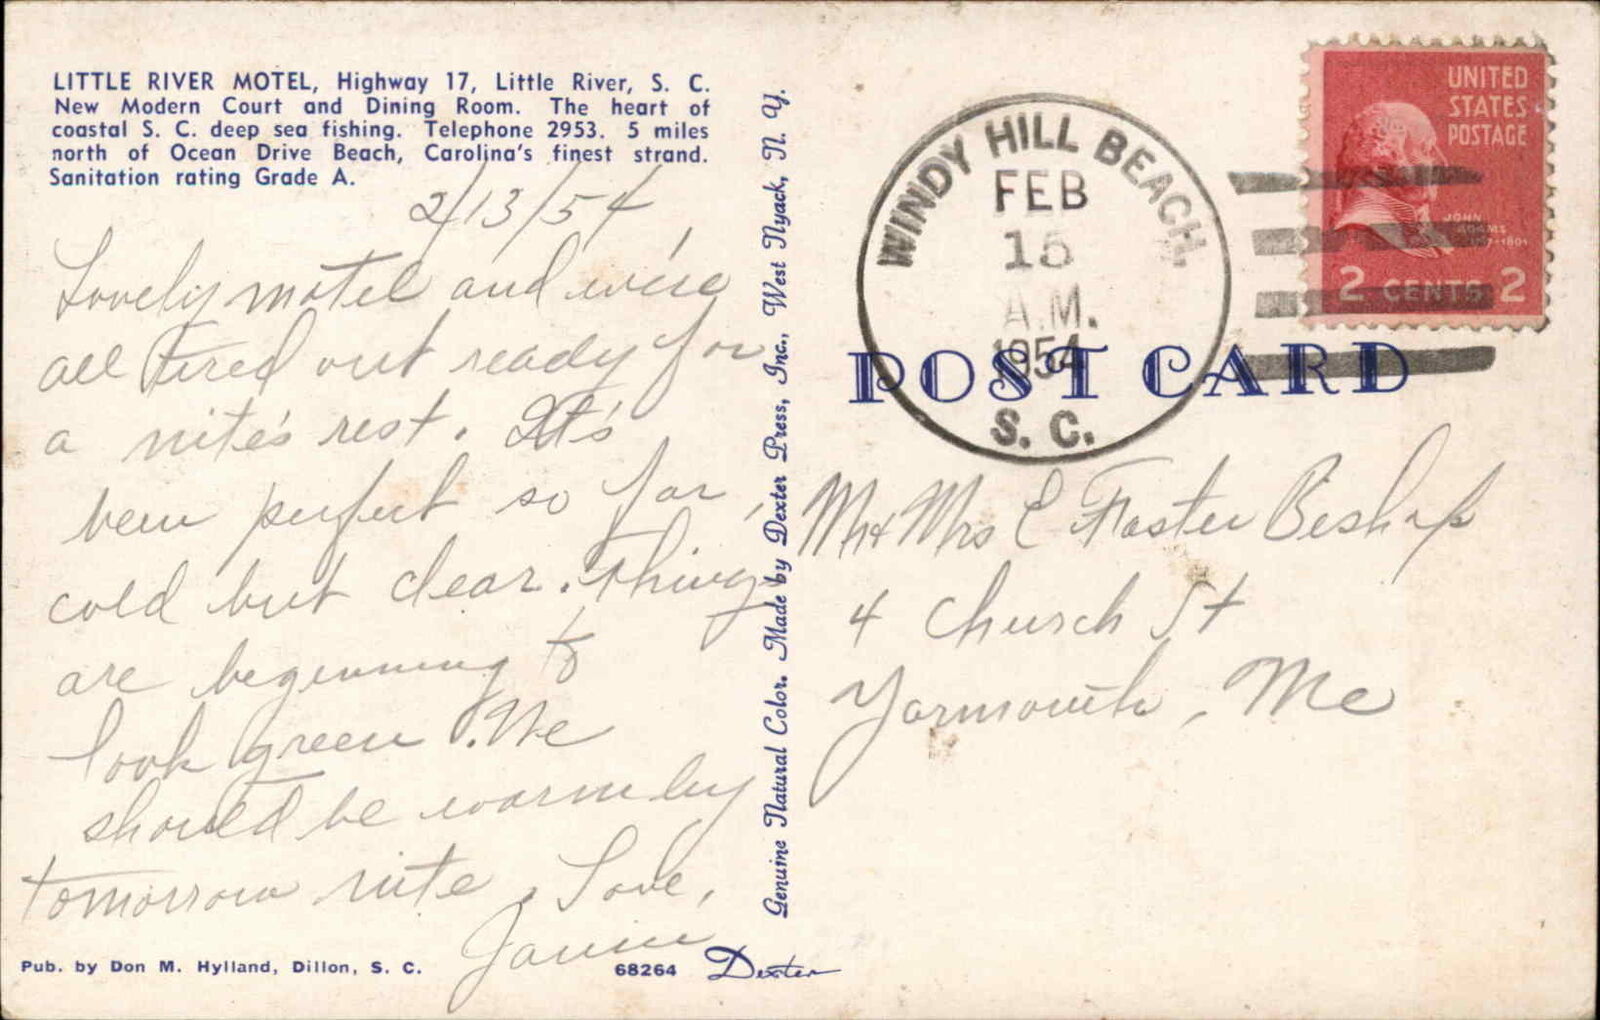 LITTLE RIVER MOTEL, Highway 17, Little River, S. C.
New Modern Court and Dining Room. The heart of
coastal S. C. deep sea fishing. Telephone 2953. 5 miles
north of Ocean Drive Beach, Carolina's finest strand.
Sanitation rating Grade A.
2/13/54
Lovely motel and we're
all tired out ready for
a nite's rest. It's
been perfect so far,
cold but clear. Things
are beginning to
look green. We
should be warm by
tomorrow nite. Love,
Pub. by Don M. Hylland, Dillon, S. C.
68264 Dexter
Genuine Natural Color. Made by Dexter Press, Inc., West Nyack, N. Y.
WINDY HILL BEACH,
FEB
15
A.M.
1954
S. C.
UNITED
STATES
POSTAGE
JOHN
ADAMS
2 CENTS 2
POST CARD
Mr + Mrs E Foster Bishop
4 Church St
Yarmouth, Me